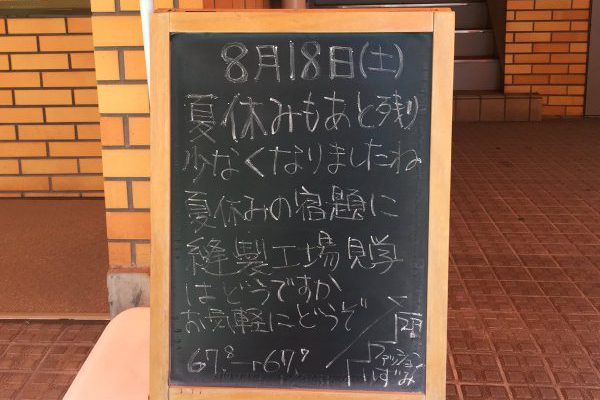 8月18日(土)
夏休みもあと残り
少なくなりましたね
夏休みの宿題に
縫製工場見学
はどうですか
お気軽にどうぞ
2階
ファッション
はずみ
67.8→67.7